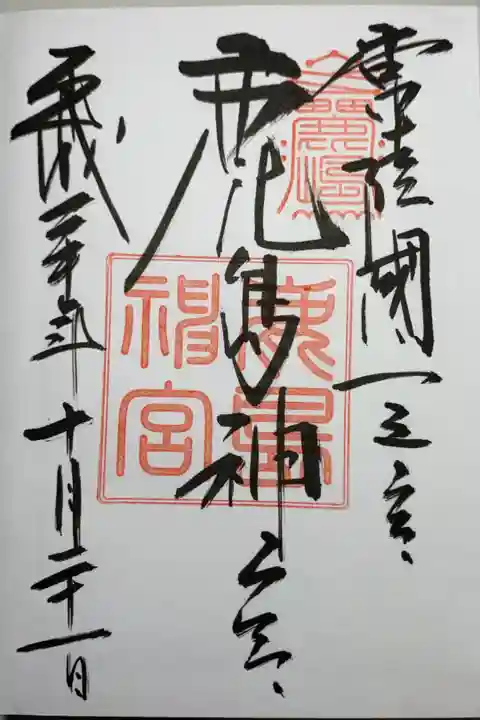 常陸國一之宮
鹿島神宮
平成
十月二十一日
鹿島
神宮